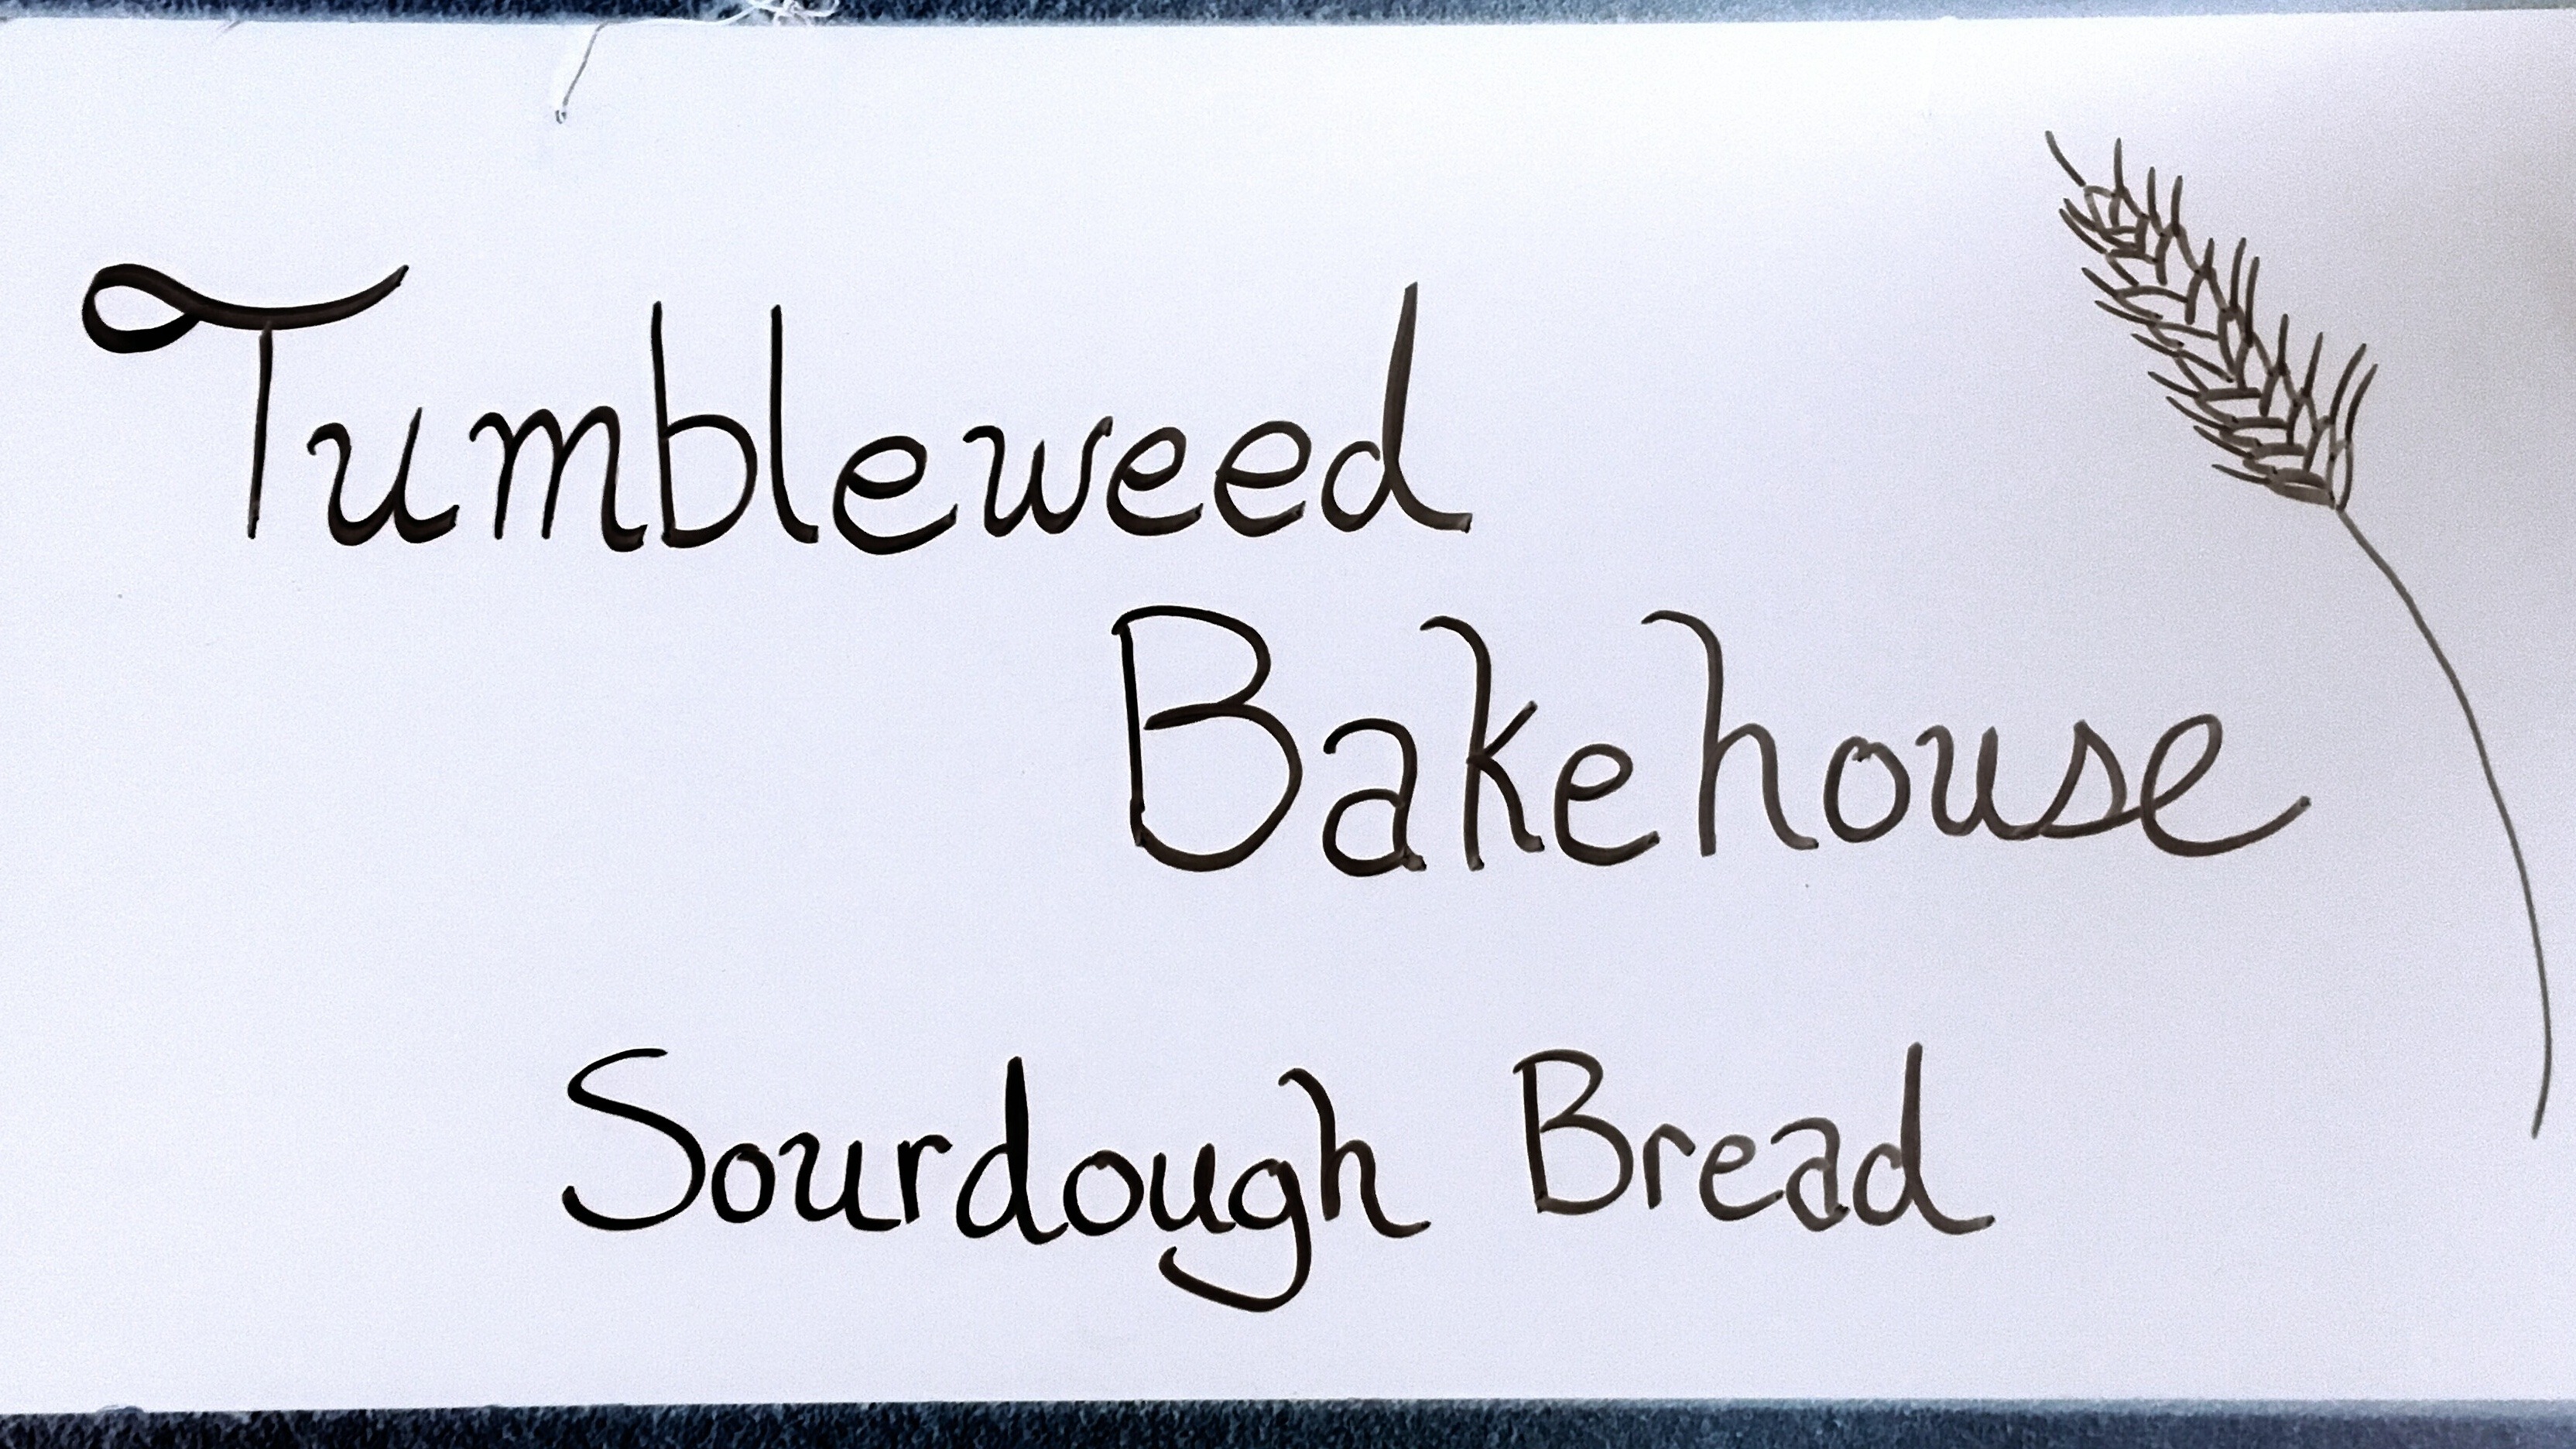 Tumbleweed
Bakehouse
Sourdough Bread